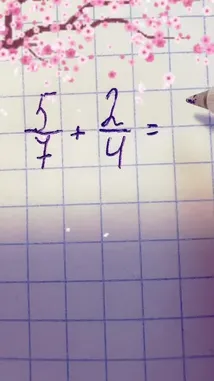 5/7 + 2/4 =